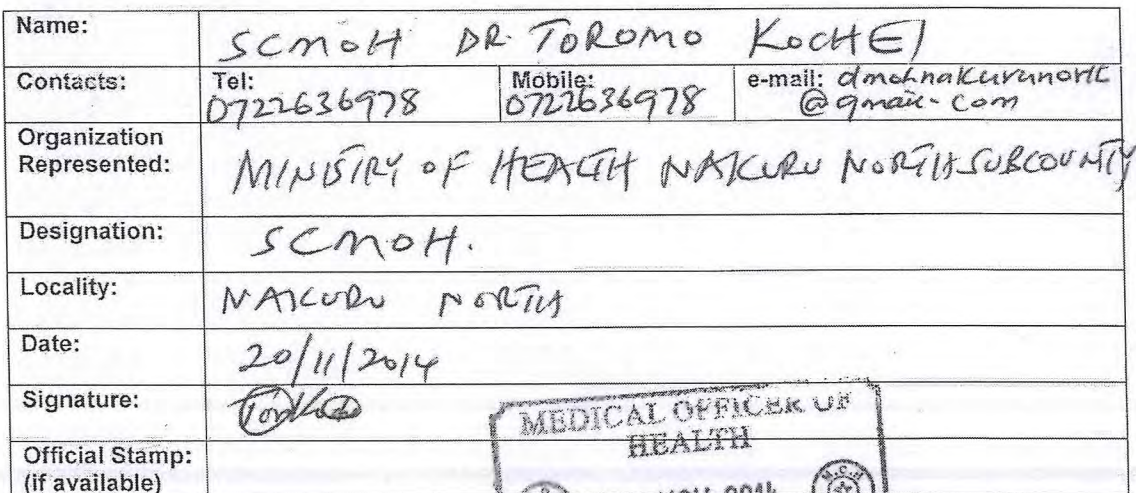 Name: SCMOH DR. TOROMO KOCHEI
Contacts: Tel: 0722636978 Mobile: 0722636978 e-mail: dmohnakurunorth
@gmail.com
Organization
Represented: MINISTRY OF HEALTH NAKURU NORTH SUBCOUNTY
Designation: SCMOH.
Locality: NAKURU NORTH
Date: 20/11/2014
Signature:
MEDICAL OFFICER OF
HEALTH
Official Stamp:
(if available)